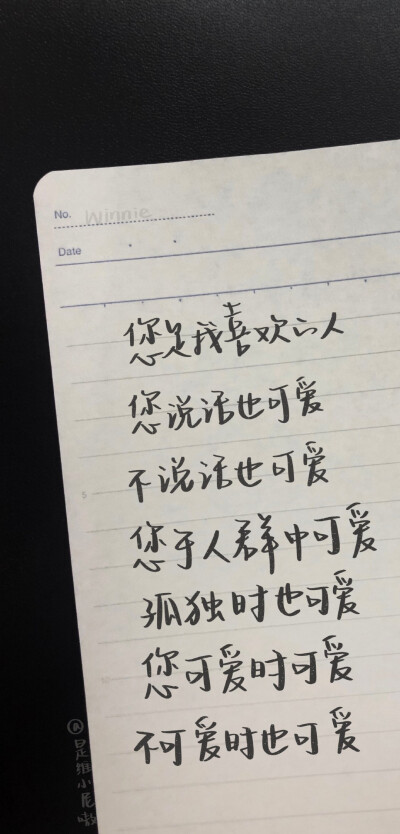 No. Winnie
Date
您是我喜欢的人
您说话也可爱
不说话也可爱
您于人群中可爱
孤独时也可爱
您可爱时可爱
不可爱时也可爱